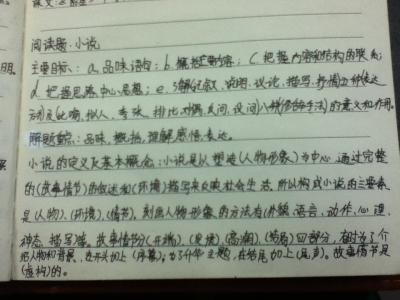 阅读题:小说
主要目标:a.品味语句;b.概括主要内容;C把握内容和结构的联系;
d.把握思路、中心思想;e.了解记叙、说明、议论、描写、抒情五种表达
方式及比喻、拟人、夸张、排比、对偶、反问、设问八种(修辞手法)的意义和作用。
解题重点:品味,概括,理解,感悟,表达。
小说的定义及基本概念:小说是以塑造(人物形象)为中心,通过完整
的(故事情节)的叙述和(环境)描写来反映社会生活,所以构成小说的三要素
是(人物)、(环境)、(情节),刻画人物形象的方法有(外貌、语言、动作、心理、
神态、描写)等。故事情节分(开端)、(发展)、(高潮)、(结局)四部分,有时为了介
绍人物和背景,在开头加上(序幕);为了升华主题,在结尾加上(尾声)。故事情节是
(虚构)的。